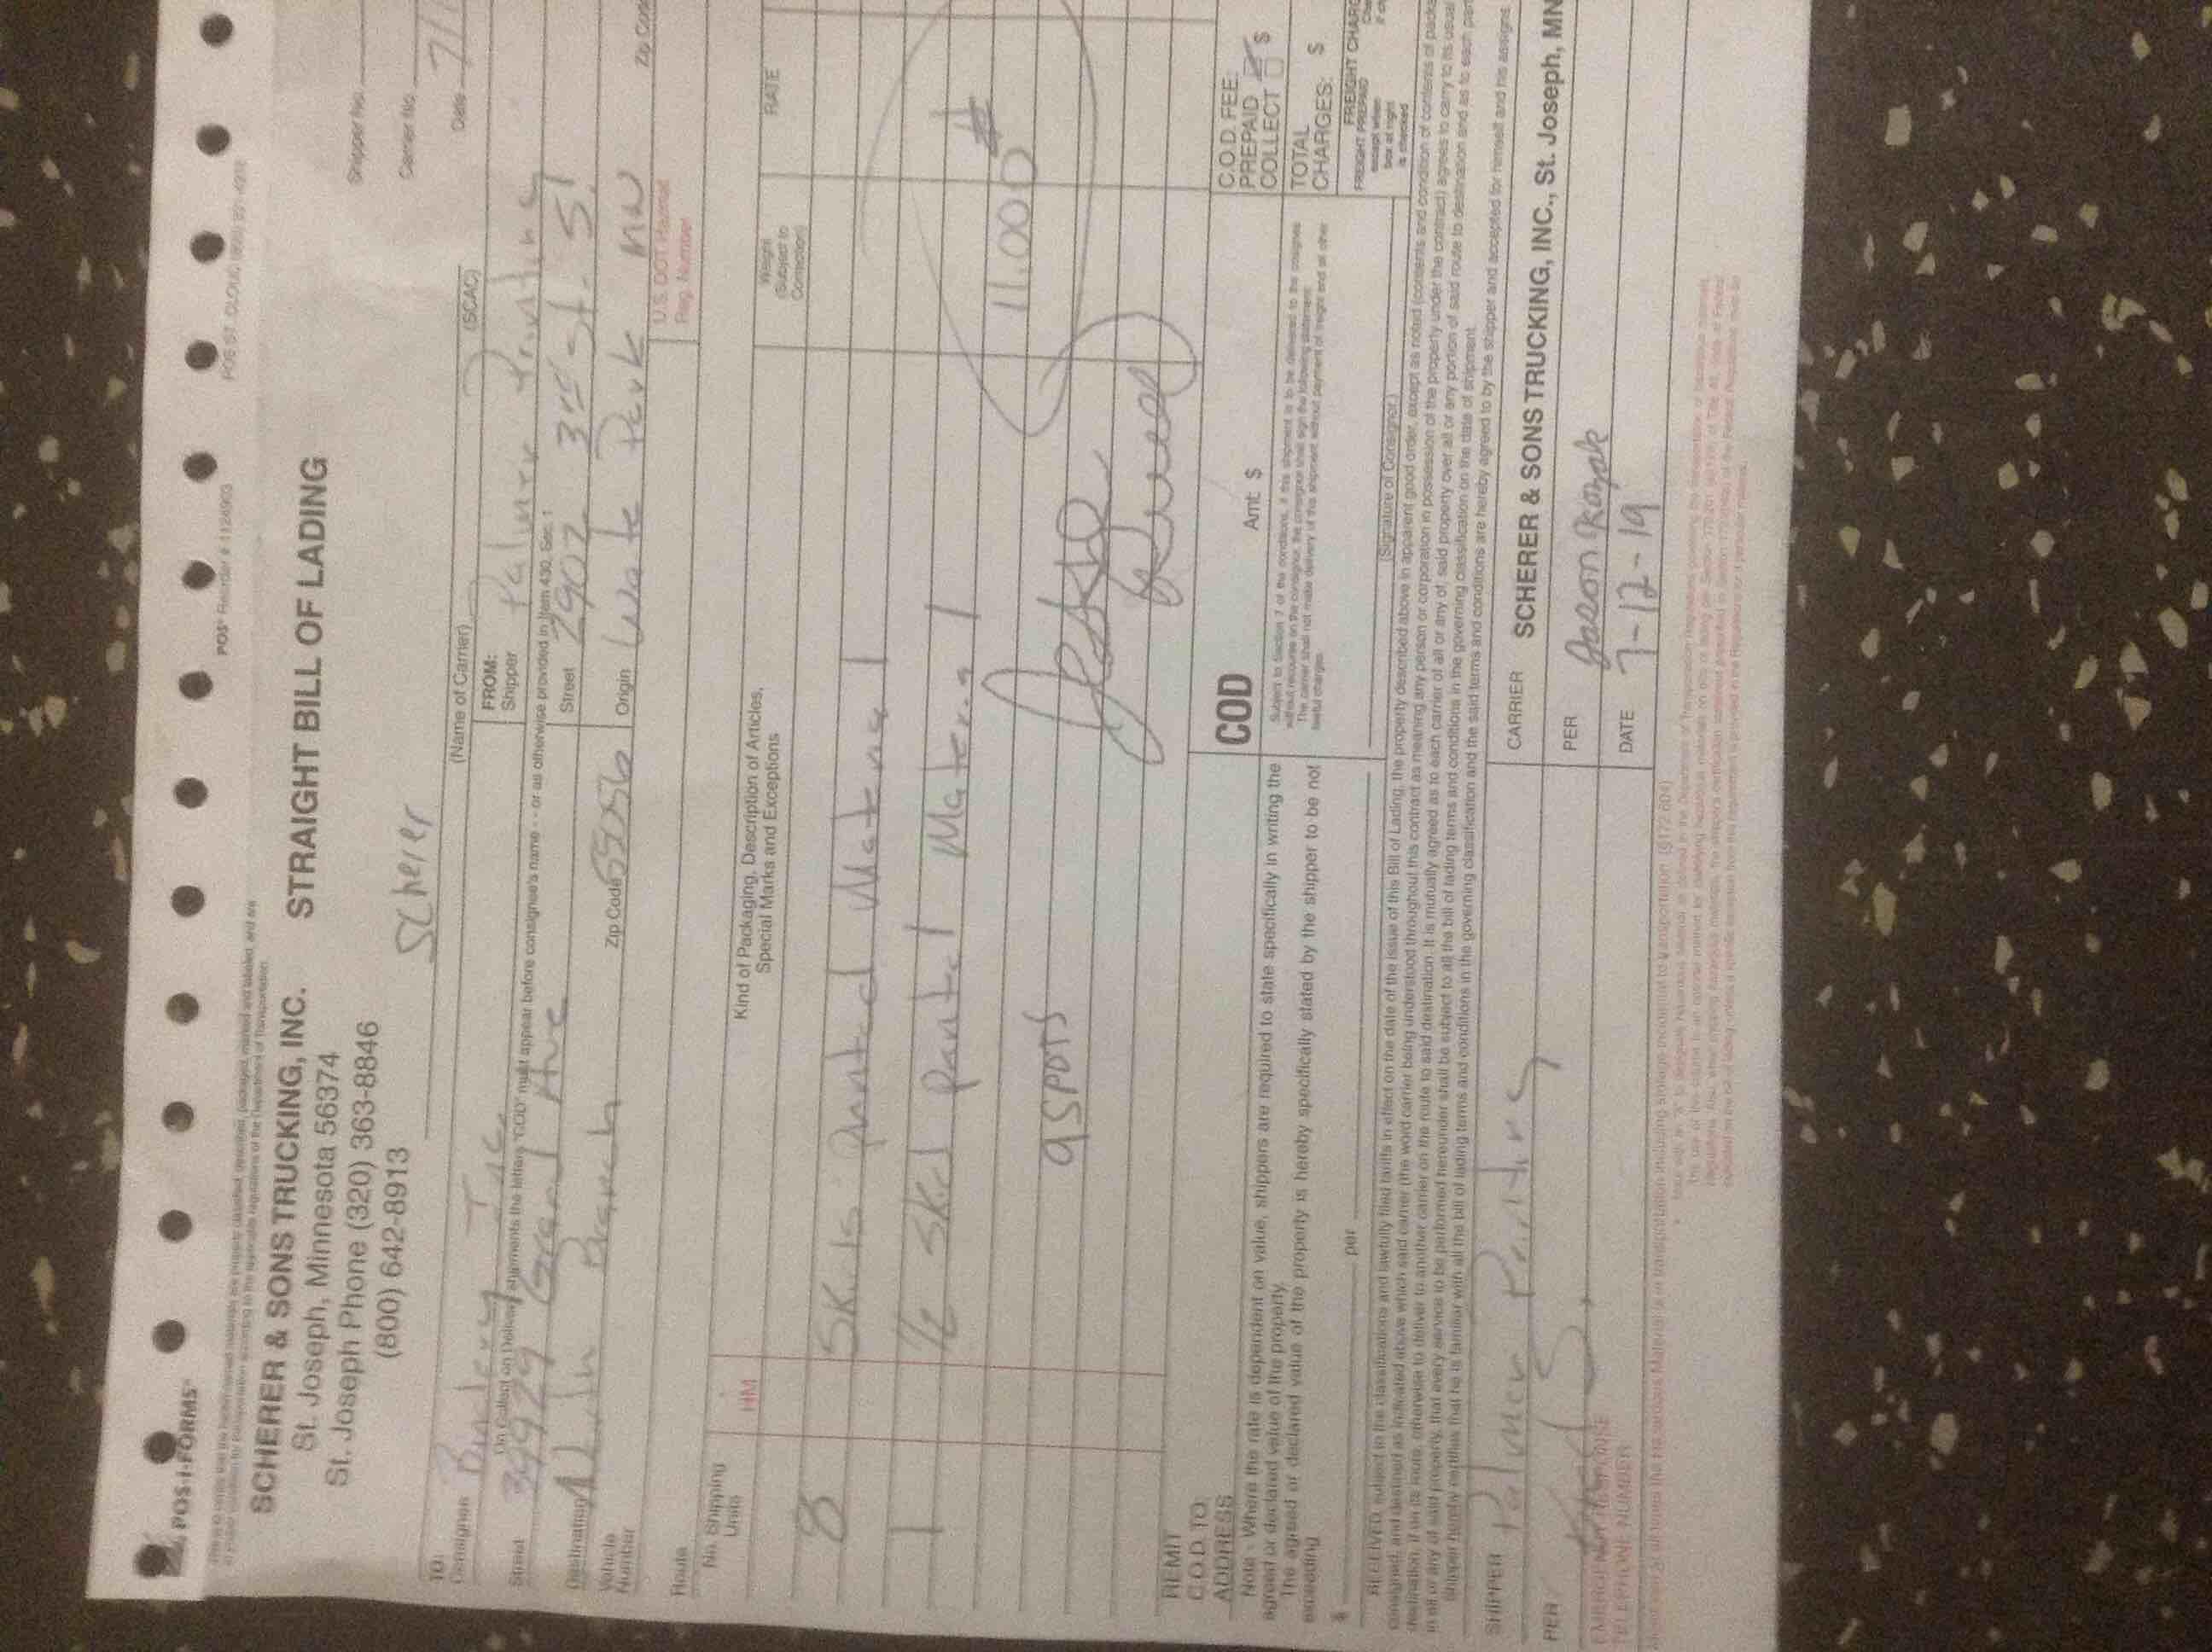 POS-I-FORMS
POS® Reorder # 1124903
SCHERER & SONS TRUCKING, INC. STRAIGHT BILL OF LADING
St. Joseph, Minnesota 56374
St. Joseph Phone (320) 363-8846
(800) 642-8913
Shipper No.
Carrier No.
Date 7/1
Scherer
(Name of Carrier) (SCAC)
TO:
Consignee Bindery Inc
FROM:
Shipper Palmer Printing
On Collect on Delivery shipments the letters "COD" must appear before consignee's name - - or as otherwise provided in Item 430, Sec. 1
Street 39929 Grand Ave
Street 2907 3rd St. S!
Destination North Branch Zip Code 55056
Origin Waite Park MN Zip Cod
Vehicle
Number
U.S. DOT Hazmat
Reg. Number
Route
No. Shipping
Units
HM
Kind of Packaging, Description of Articles,
Special Marks and Exceptions
Weight
(Subject to
Correction)
RATE
8 Skids printed Material
1 1/2 Skid printed Material
11,000 #
9 SPOTS
REMIT
C.O.D. TO:
ADDRESS
COD Amt: $
C.O.D. FEE:
PREPAID
COLLECT $
Note - Where the rate is dependent on value, shippers are required to state specifically in writing the
agreed or declared value of the property.
The agreed or declared value of the property is hereby specifically stated by the shipper to be not
exceeding
$ per
Subject to Section 7 of the conditions, if this shipment is to be delivered to the consignee
without recourse on the consignor, the consignor shall sign the following statement:
The carrier shall not make delivery of this shipment without payment of freight and all other
lawful charges.
(Signature of Consignor)
TOTAL
CHARGES: $
FREIGHT CHARG
FREIGHT PREPAID
except when
box at right
is checked
RECEIVED, subject to the classifications and lawfully filed tariffs in effect on the date of the issue of this Bill of Lading, the property described above in apparent good order, except as noted (contents and condition of contents of packa
consigned, and destined as indicated above which said carrier (the word carrier being understood throughout this contract as meaning any person or corporation in possession of the property under the contract) agrees to carry to its usual
destination, if on its route, otherwise to deliver to another carrier on the route to said destination. It is mutually agreed as to each carrier of all or any of, said property over all or any portion of said route to destination and as to each part
in all or any of said property, that every service to be performed hereunder shall be subject to all the bill of lading terms and conditions in the governing classification on the date of shipment.
Shipper hereby certifies that he is familiar with all the bill of lading terms and conditions in the governing classification and the said terms and conditions are hereby agreed to by the shipper and accepted for himself and his assigns
SHIPPER Palmer Printing
CARRIER SCHERER & SONS TRUCKING, INC., St. Joseph, MN
PER
PER Jason
EMERGENCY RESPONSE
TELEPHONE NUMBER
DATE 7-12-19